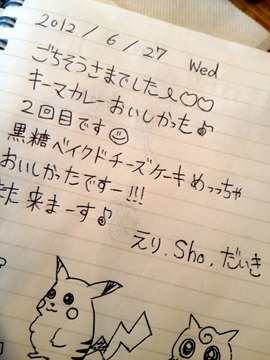 2012/6/27 Wed
ごちそうさまでした♡♡
キーマカレーおいしかった♪
2回目です☺
黒糖ベイクドチーズケーキめっっちゃ
おいしかったですー!!!
また 来まーす♪
えり. Sho. だいき